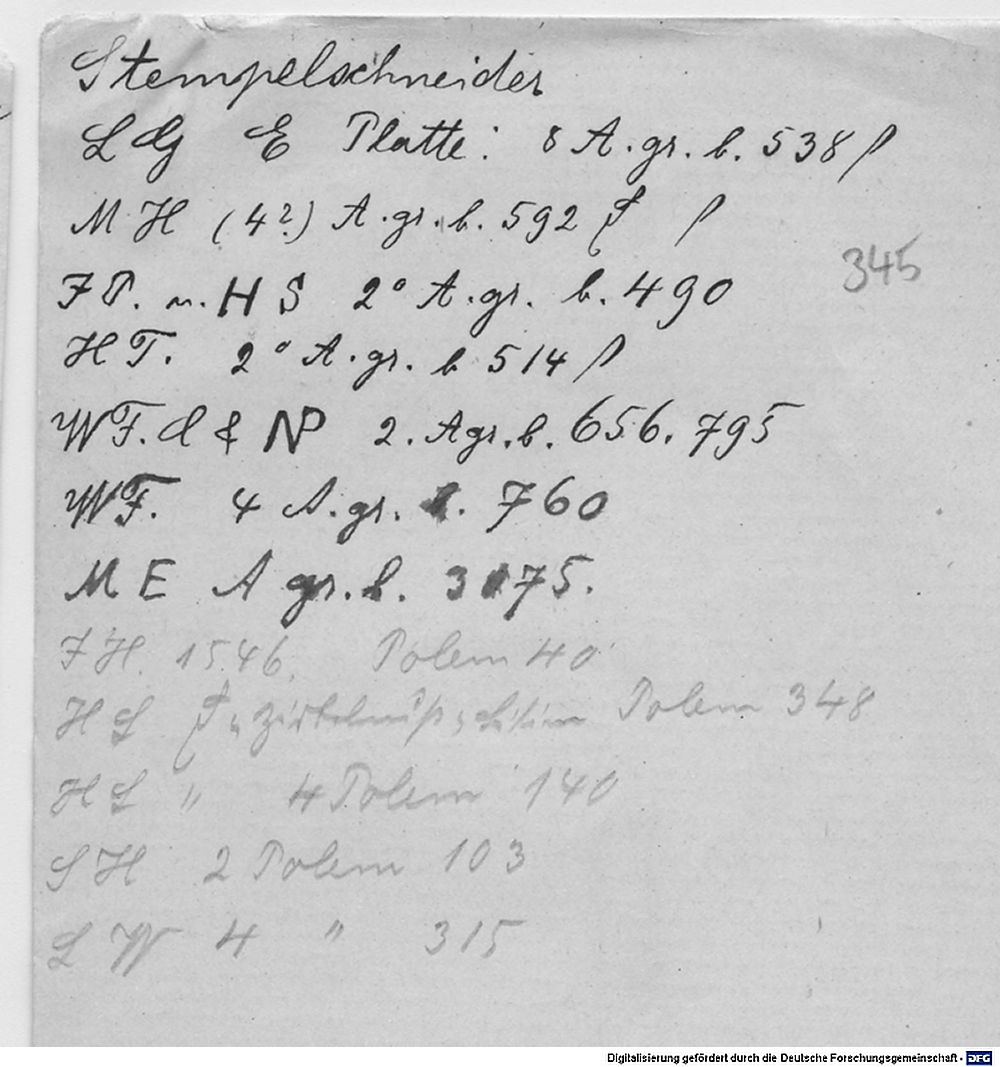 Stempelschneider
L G E Platte: 8 A. gr. b. 538 β
M H (4?) A. gr. b. 592 β
345
I P. u. H S 2° A. gr. b. 490
H T. 2° A. gr. b 514 β
W F. & N P 2. A gr. b. 656. 795
W F. 4 A. gr. b. 760
M E A gr. b. 3175.
I H. 1546. Polem 40
H S Polem 348
H S " 4 Polem 140
S H 2 Polem 103
L W 4 " 315
Digitalisierung gefördert durch die Deutsche Forschungsgemeinschaft - DFG